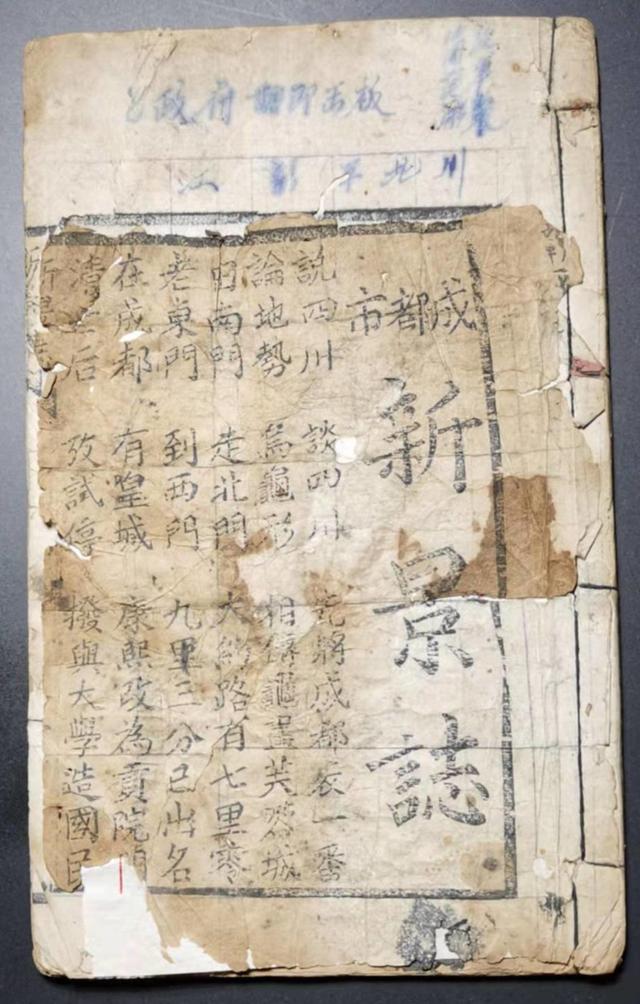 政府
江彰平北川
成都市
新景誌
說四川 談四川 先將成都表一番
論地勢 為龜形 相傳龜畫芙蓉城
南門 走北門 大約路有七里零
老東門 到西門 九里三分已出名
在成都 有皇城 康熙改為貢院
清后 攷試停 撥與大學造國民